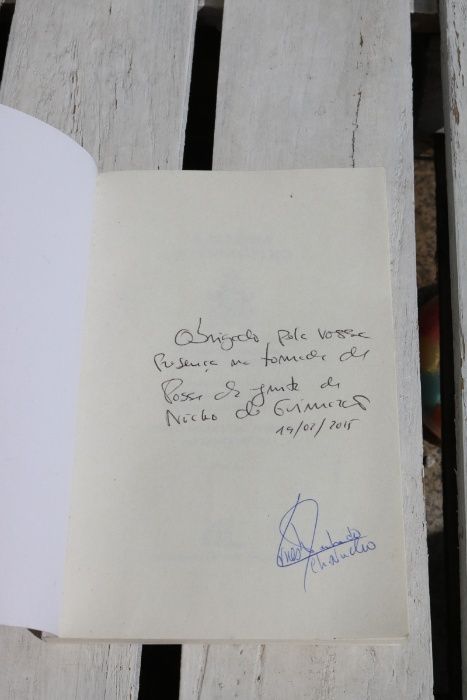 Obrigado pela vossa
Presença na tomada de
Posse da junta de
Núcleo de Guimarães
14/02/2015